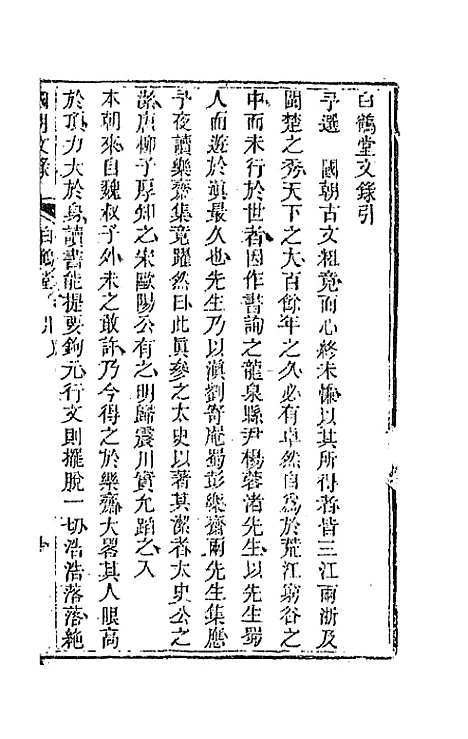 白鶴堂文錄引
予選　國朝古文粗竟而心終未慊以其所得者皆三江兩浙及
閩楚之秀天下之大百餘年之久必有卓然自爲於荒江窮谷之
中而未行於世者因作書諭之龍泉縣尹楊蓉渚先生以先生蜀
人而遊於滇最久也先生乃以滇劉寄庵蜀彭樂齋兩先生集應
予夜讀樂齋集竟躍然曰此眞參之太史以著其潔者太史公之
潔唐柳子厚知之宋歐陽公有之明歸震川實允蹈之入
本朝來自魏叔子外未之敢許乃今得之於樂齋大畧其人眼高
於頂力大於身讀書能提要鉤元行文則擺脫一切浩浩落落絕
國朝文錄
白鶴堂　引